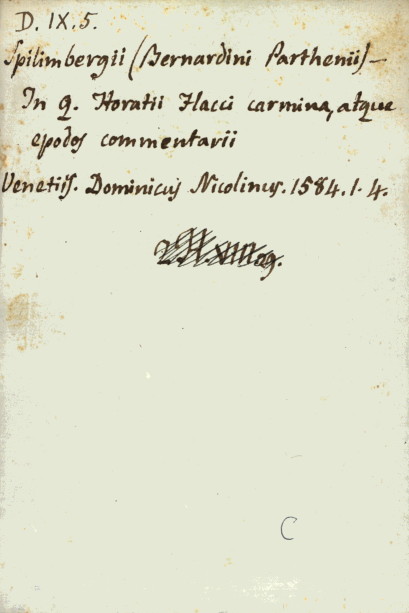 D. IX. 5.
Spilimbergii (Bernardini Parthenii) —
In Q. Horatii Flacci carmina, atque
epodos commentarii
Venetiis. Dominicus Nicolinus. 1584. 1. 4.
C